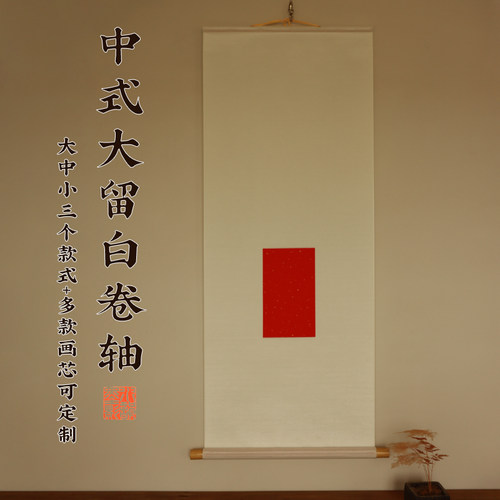 中式大留白卷轴
大中小三个款式+多款画芯可定制